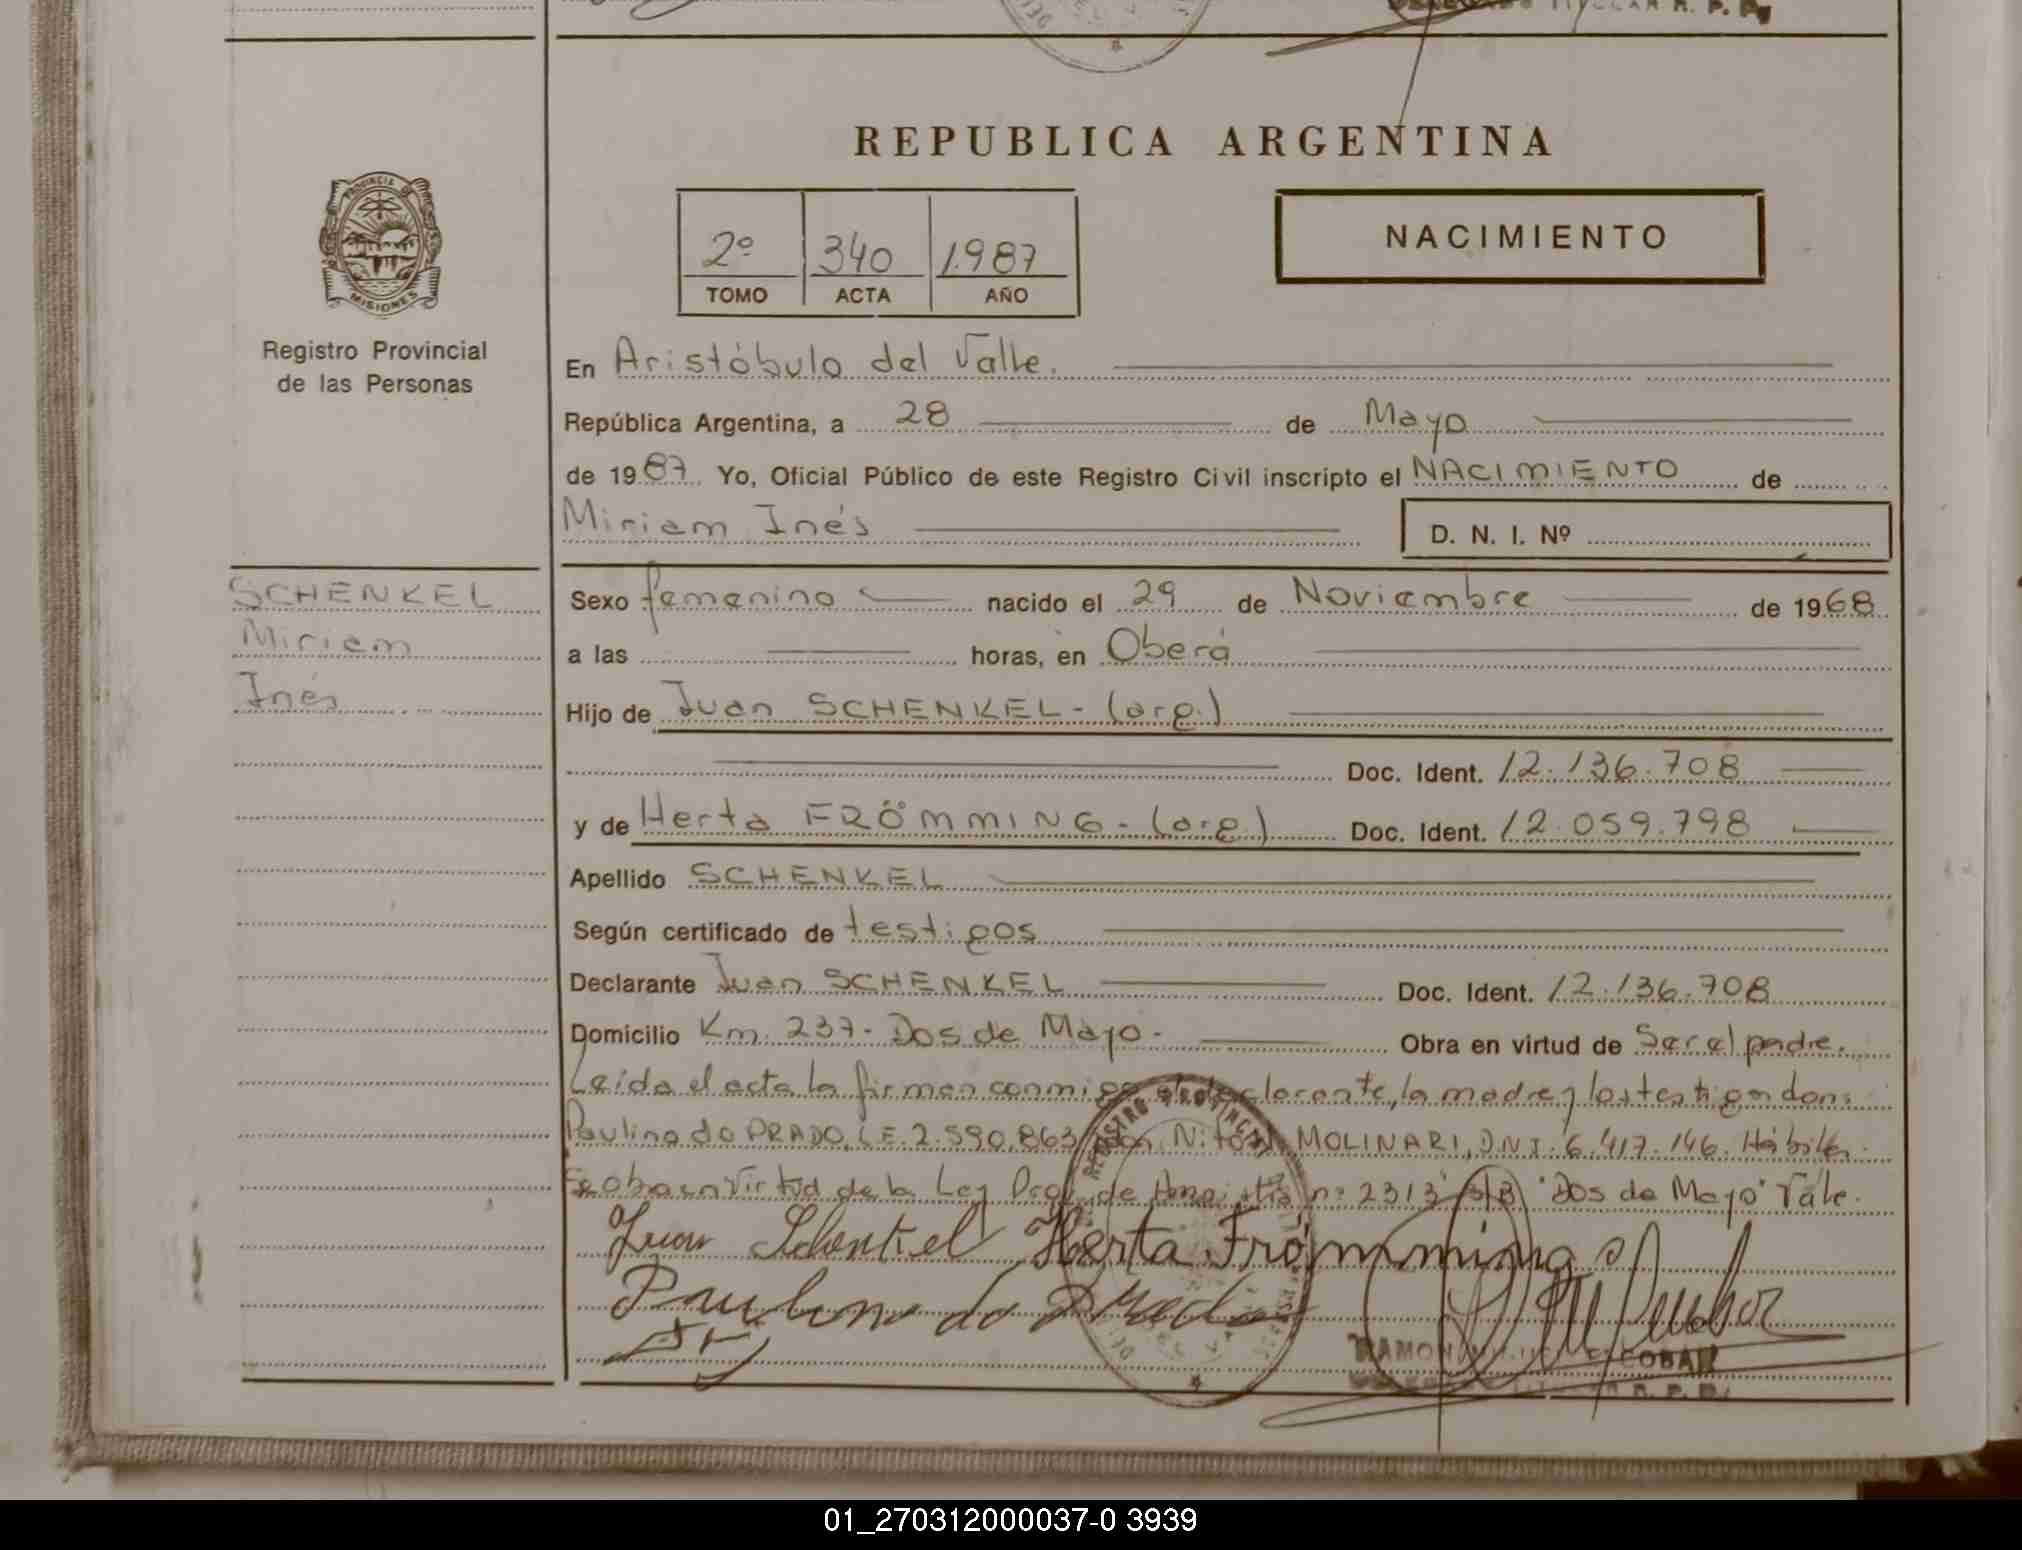 REPUBLICA ARGENTINA
2º 340 1987
TOMO ACTA AÑO
NACIMIENTO
PROVINCIA DE
MISIONES
Registro Provincial
de las Personas
En Aristóbulo del Valle.
República Argentina, a 28 de Mayo
de 1987. Yo, Oficial Público de este Registro Civil inscripto el NACIMIENTO de
Miriam Inés
D. N. I. Nº
SCHENKEL
Miriam
Inés
Sexo femenino nacido el 29 de Noviembre de 1968
a las horas, en Oberá
Hijo de Juan SCHENKEL - (arg.)
Doc. Ident. 12.136.708
y de Herta FRÖMMING - (arg.) Doc. Ident. 12.059.798
Apellido SCHENKEL
Según certificado de testigos
Declarante Juan SCHENKEL Doc. Ident. 12.136.708
Domicilio Km. 237 - Dos de Mayo - Obra en virtud de Ser el padre.
Leída el acta la firman conmigo el declarante, la madre y los testigos don:
Paulino do PRADO, L.E. 2.590.863 don MOLINARI, D.N.I. 6.417.146. Hábiles.
Se obra en virtud de la Ley de Amnistía nº 2313 S/B "Dos de Mayo" Vale.
Juan Schenkel Herta Frömming
Paulino do Prado
REGISTRO PROVINCIAL
RAMON ESCOBAR
R. P. P.
01_270312000037-0 3939